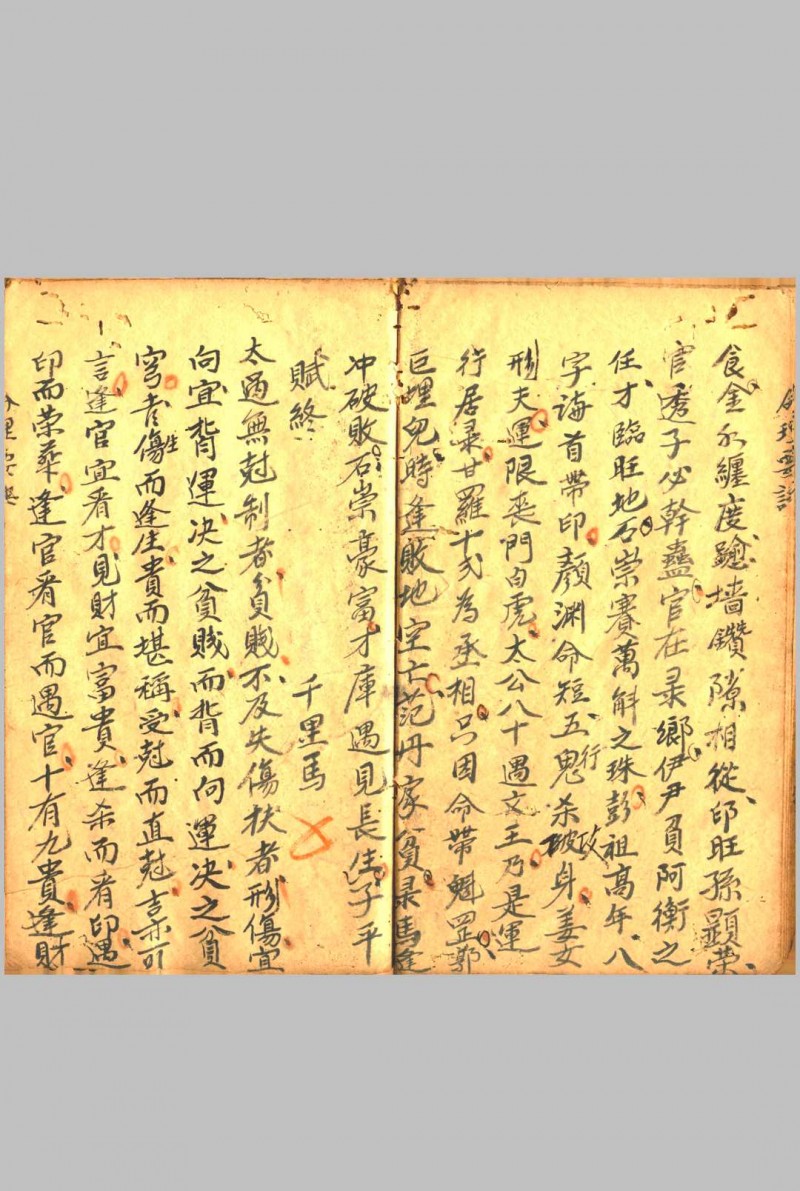 食金水纏度踰墙鑽隙相從印旺孫顕荣
官透子必幹蠱官在彔鄉伊尹負阿衡之
任才臨旺地石崇賽萬斛之珠彭祖高年八
字诲首帶印顏渊命短五鬼行杀破攻身姜女
刑夫運限丧門白虎太公八十遇文王乃是運
行居彔甘羅十弍為丞相只因命帶魁罡郭
巨埋兒時逢敗地空亡范丹家貧彔馬逢
冲破敗石崇豪富才庫遇見長生子平
賦終
千里馬
太過無尅制者貧贱不及失傷扶者刑傷宜
向宜背運决之貧贱而背而向運决之貧
穷者傷生而逢生贵而堪稱受尅而直尅言亦可
言逢官宜看才見財宜富貴逢杀而看印遇
印而荣華逢官看官而遇官十有九貴逢財